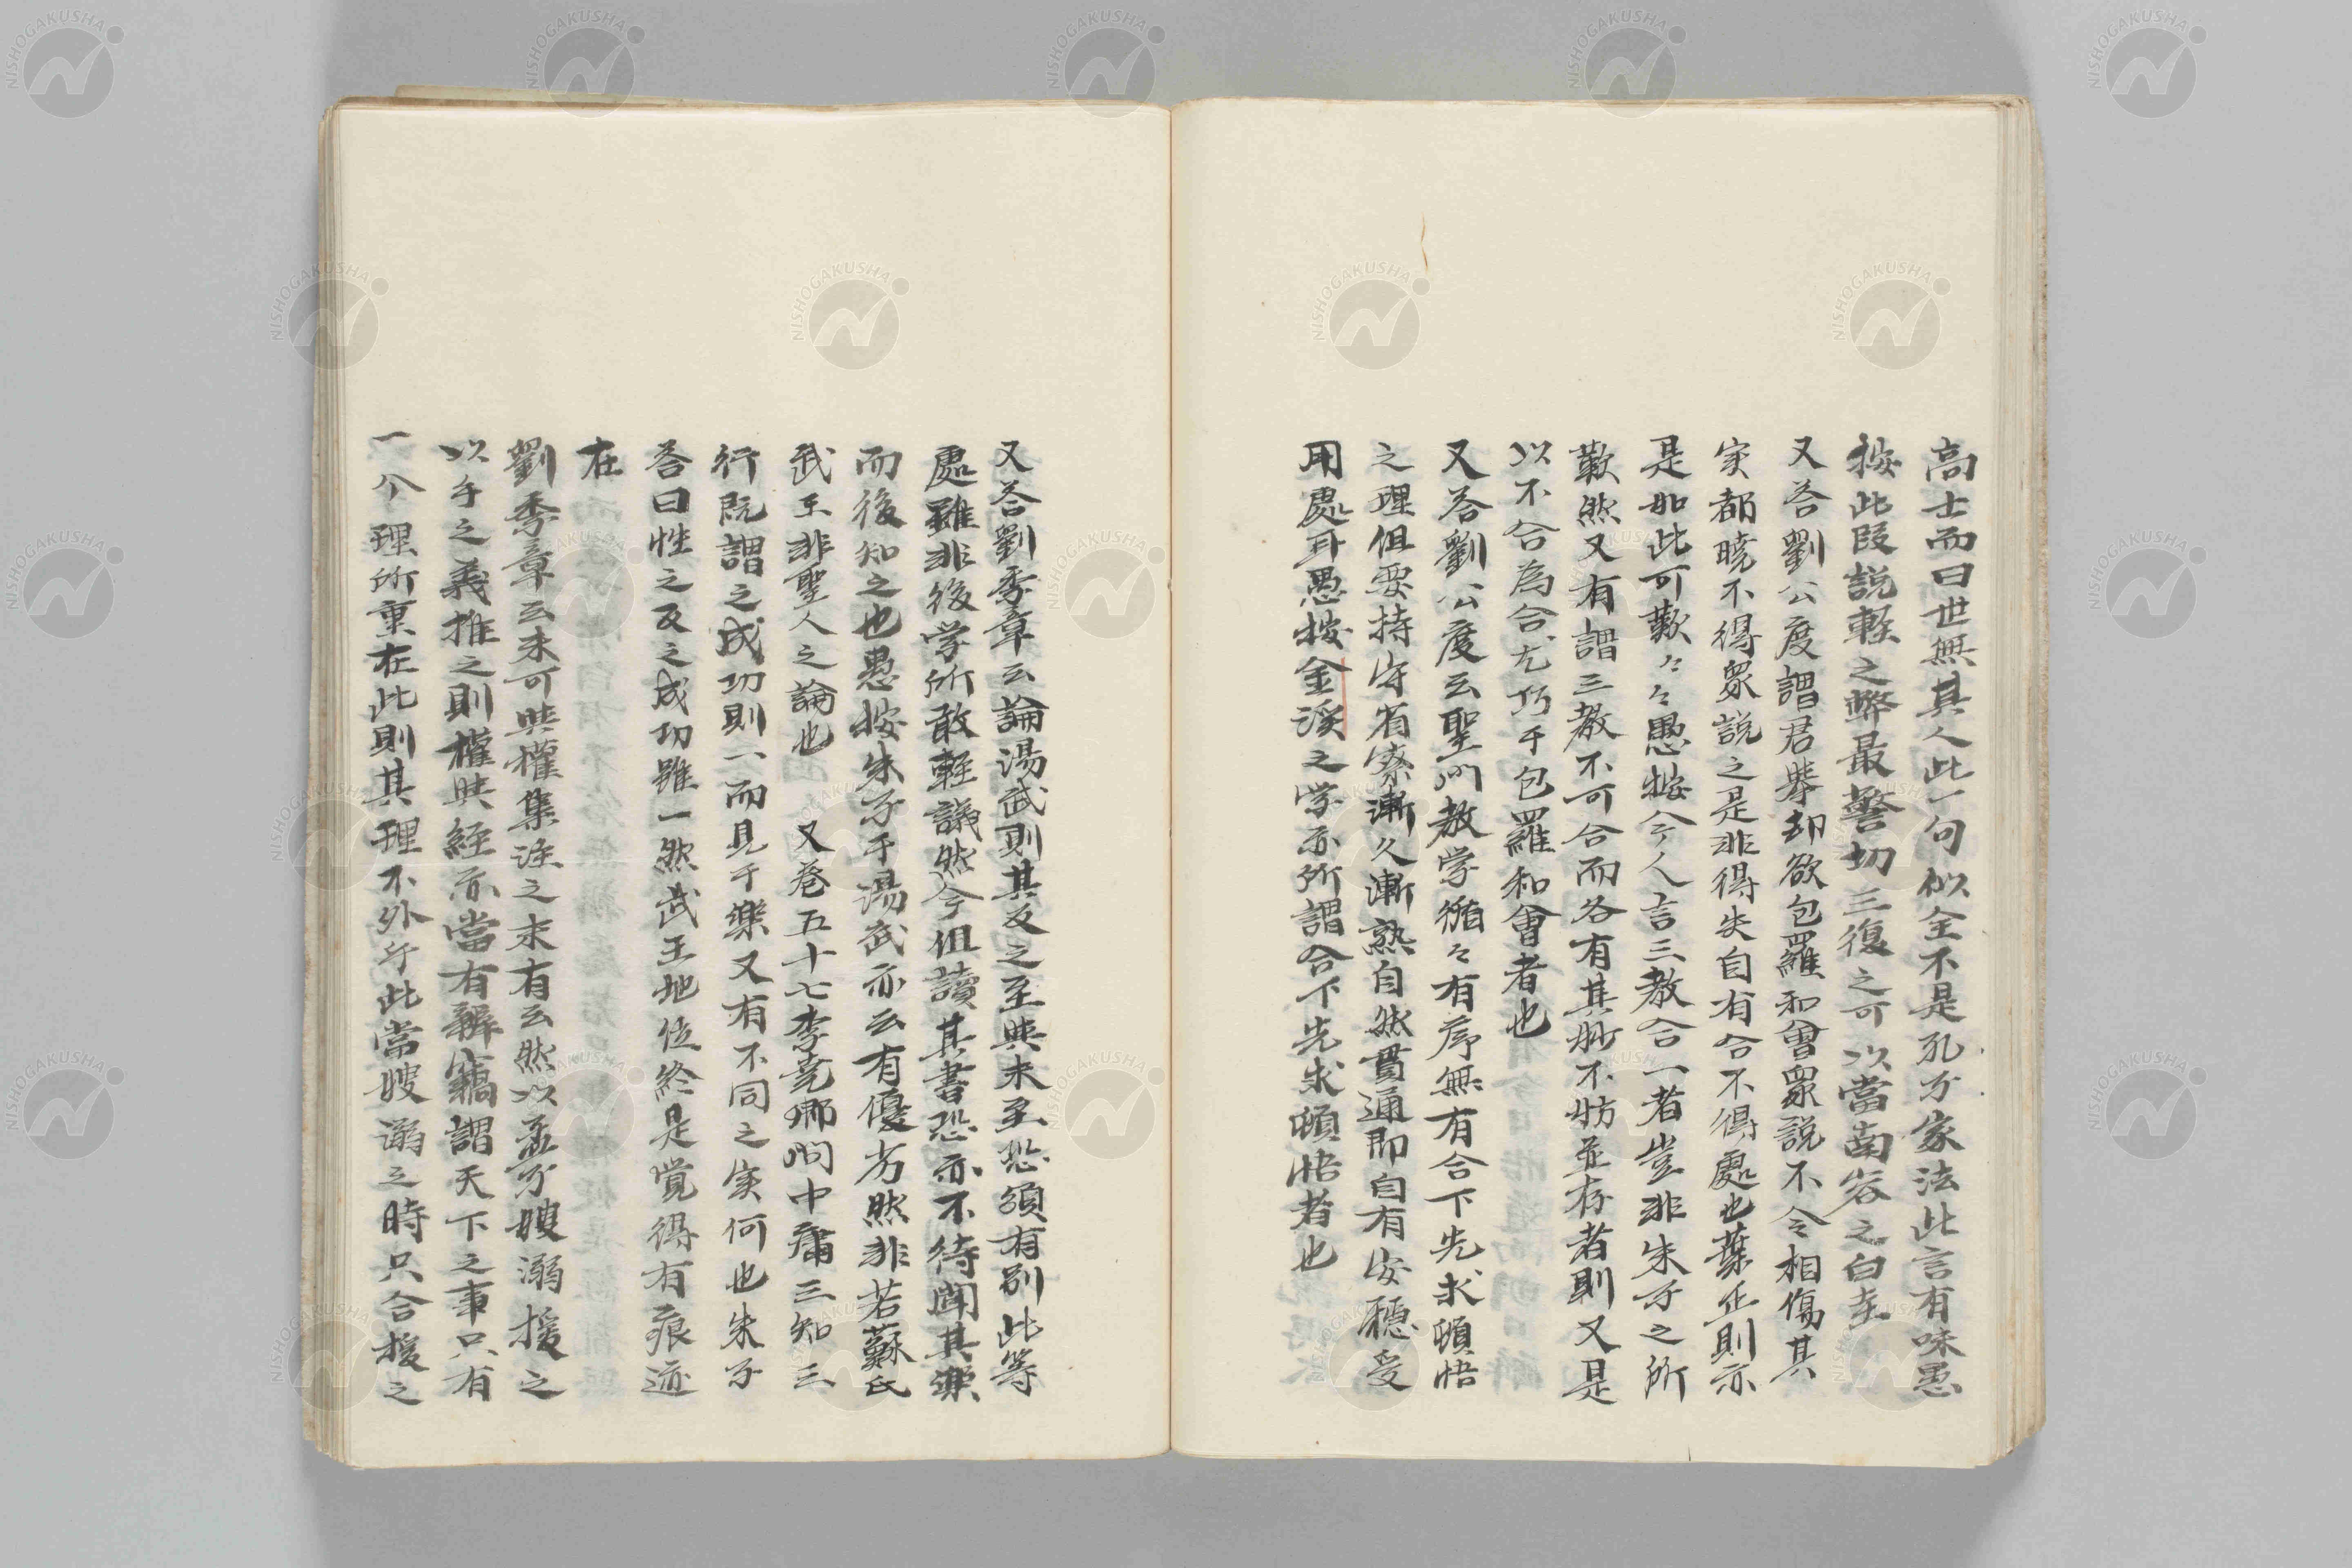 高士而曰世無其人此一句似全不是孔方家法此言有味愚
按此段説軽之弊最警切三復之可以當南容之白圭
又答劉公度謂君挙却欲包羅和會衆説不令相傷其
実都暁不得衆説之是非得失自有合不得處也葉正則亦
是如此可歎々々愚按今人言三教合一者豈非朱子之所
歎然又有謂三教不可合而各有其所不妨並存者則又是
以不合為合尤巧于包羅和會者也
又答劉公度云聖門教学循々有序無有合下先求頓悟
之理但要持守省察漸久漸熟自然貫通即自有安穏受
用處耳愚按金渓之学亦所謂合下先求頓悟者也
又答劉季章云論湯武則其反之至與未至恐須有別此等
處雖非後学所敢軽議然今但讀其書恐亦不待聞其樂
而後知之也愚按朱子于湯武亦云有優劣然非若蘇氏
武王非聖人之論也 又巻五十七李堯卿問中庸三知三
行既謂之成功則一而見于樂又有不同之実何也朱子
答曰性之反之成功雖一然武王地位終是覚得有痕迹
在
劉季章云未可與權集注之末有云然以孟子嫂溺援之
以手之義推之則權與經亦當有辨竊謂天下之事只有
一个理所重在此則其理不外于此當嫂溺之時只合援之
NISHOGAKUSHA